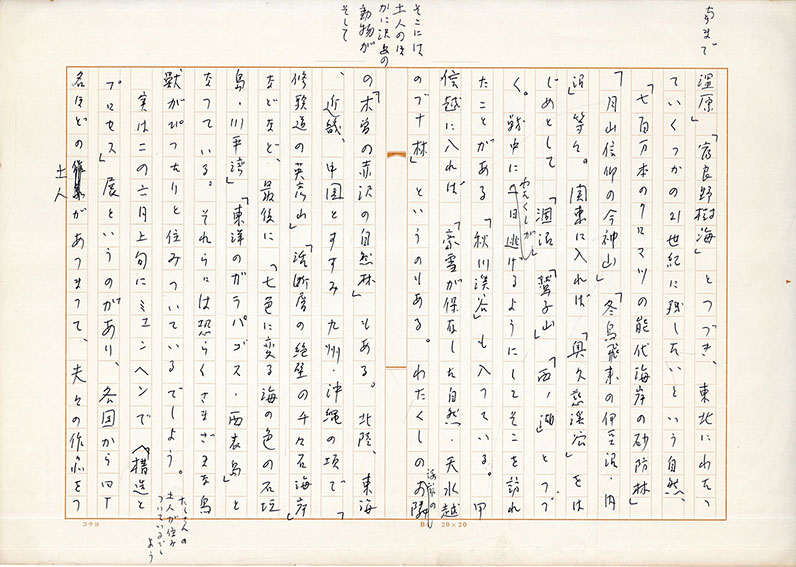 湿原」「富良野樹海」とつづき、東北にわたっ
ていくつかの21世紀に残したいという自然、
「七百万本のクロマツの能代海岸の砂防林」
「月山信仰の今神山」「冬鳥飛来の伊豆沼・内
沼」等々。関東に入れば「奥久慈渓谷」をは
じめとして「涸沼」「鷲子山」「西ノ湖」とつづ
く。戦中に 逃げるようにしてそこを訪れ
たことがある「秋川渓谷」も入っている。甲
信越に入れば「豪雪が保存した自然・天水越
のブナ林」というのもある。わたくしのお隣
の「木曽の赤沢の自然林」もある。北陸、東海
、近畿、中国とすすみ九州・沖縄の項で「
修験道の英彦山」「活断層の絶壁の千々石海岸」
などなど、最後に「七色に変る海の色の石垣
島・川平湾」「東洋のガラパゴス・西表島」と
なっている。それらには恐らくさまざまな鳥
獣がぴったりと住みついているでしょう。
実はこの六月上旬にミュンヘンで「構造と
プロセス」展というのがあり、各国から四十
名ほどの があつまって、夫々の作品をつ
そこには、
土人のほ
かに沢山の
動物が
そして
土人
たくさんの
土人が住み
ついているでし
ょう
コクヨ
20×20